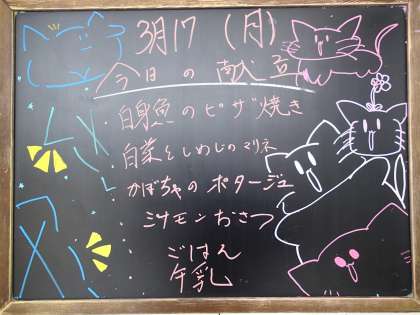 3月17(月)
今日の献立
・白身魚のピザ焼き
・白菜としめじのマリネ
・かぼちゃのポタージュ
・シナモンおさつ
ごはん
牛乳